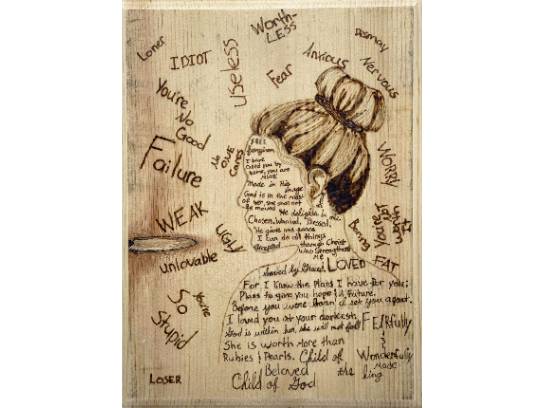 Loner
IDIOT
useless
Worth-
LESS
Fear
Anxious
Dismay
Nervous
You're
No
Good
Failure
No
ONE
Cares
WEAK
UGLY
unlovable
You're
So
Stupid
LOSER
WORRY
You're
Not
Worth
it
Boring
FAT
FREE
forgiven
I have
Called you by
name, you are
MINE
Made in His
image
God is in the midst
of her, she shall not
be moved
He delights in me
Chosen, Wanted, Blessed.
He gives me peace
I can do all things
through Christ
who Strengthens
ME
Saved by Grace
LOVED
For I know the Plans I have for you;
Plans to give you hope & a future.
Before you were born I set you apart.
I loved you at your darkest
God is within her, she will not fall
She is worth More than
Rubies & Pearls.
FEARfully
&
Wonderfully
MADE
Child of
the
king
Beloved
Child of God